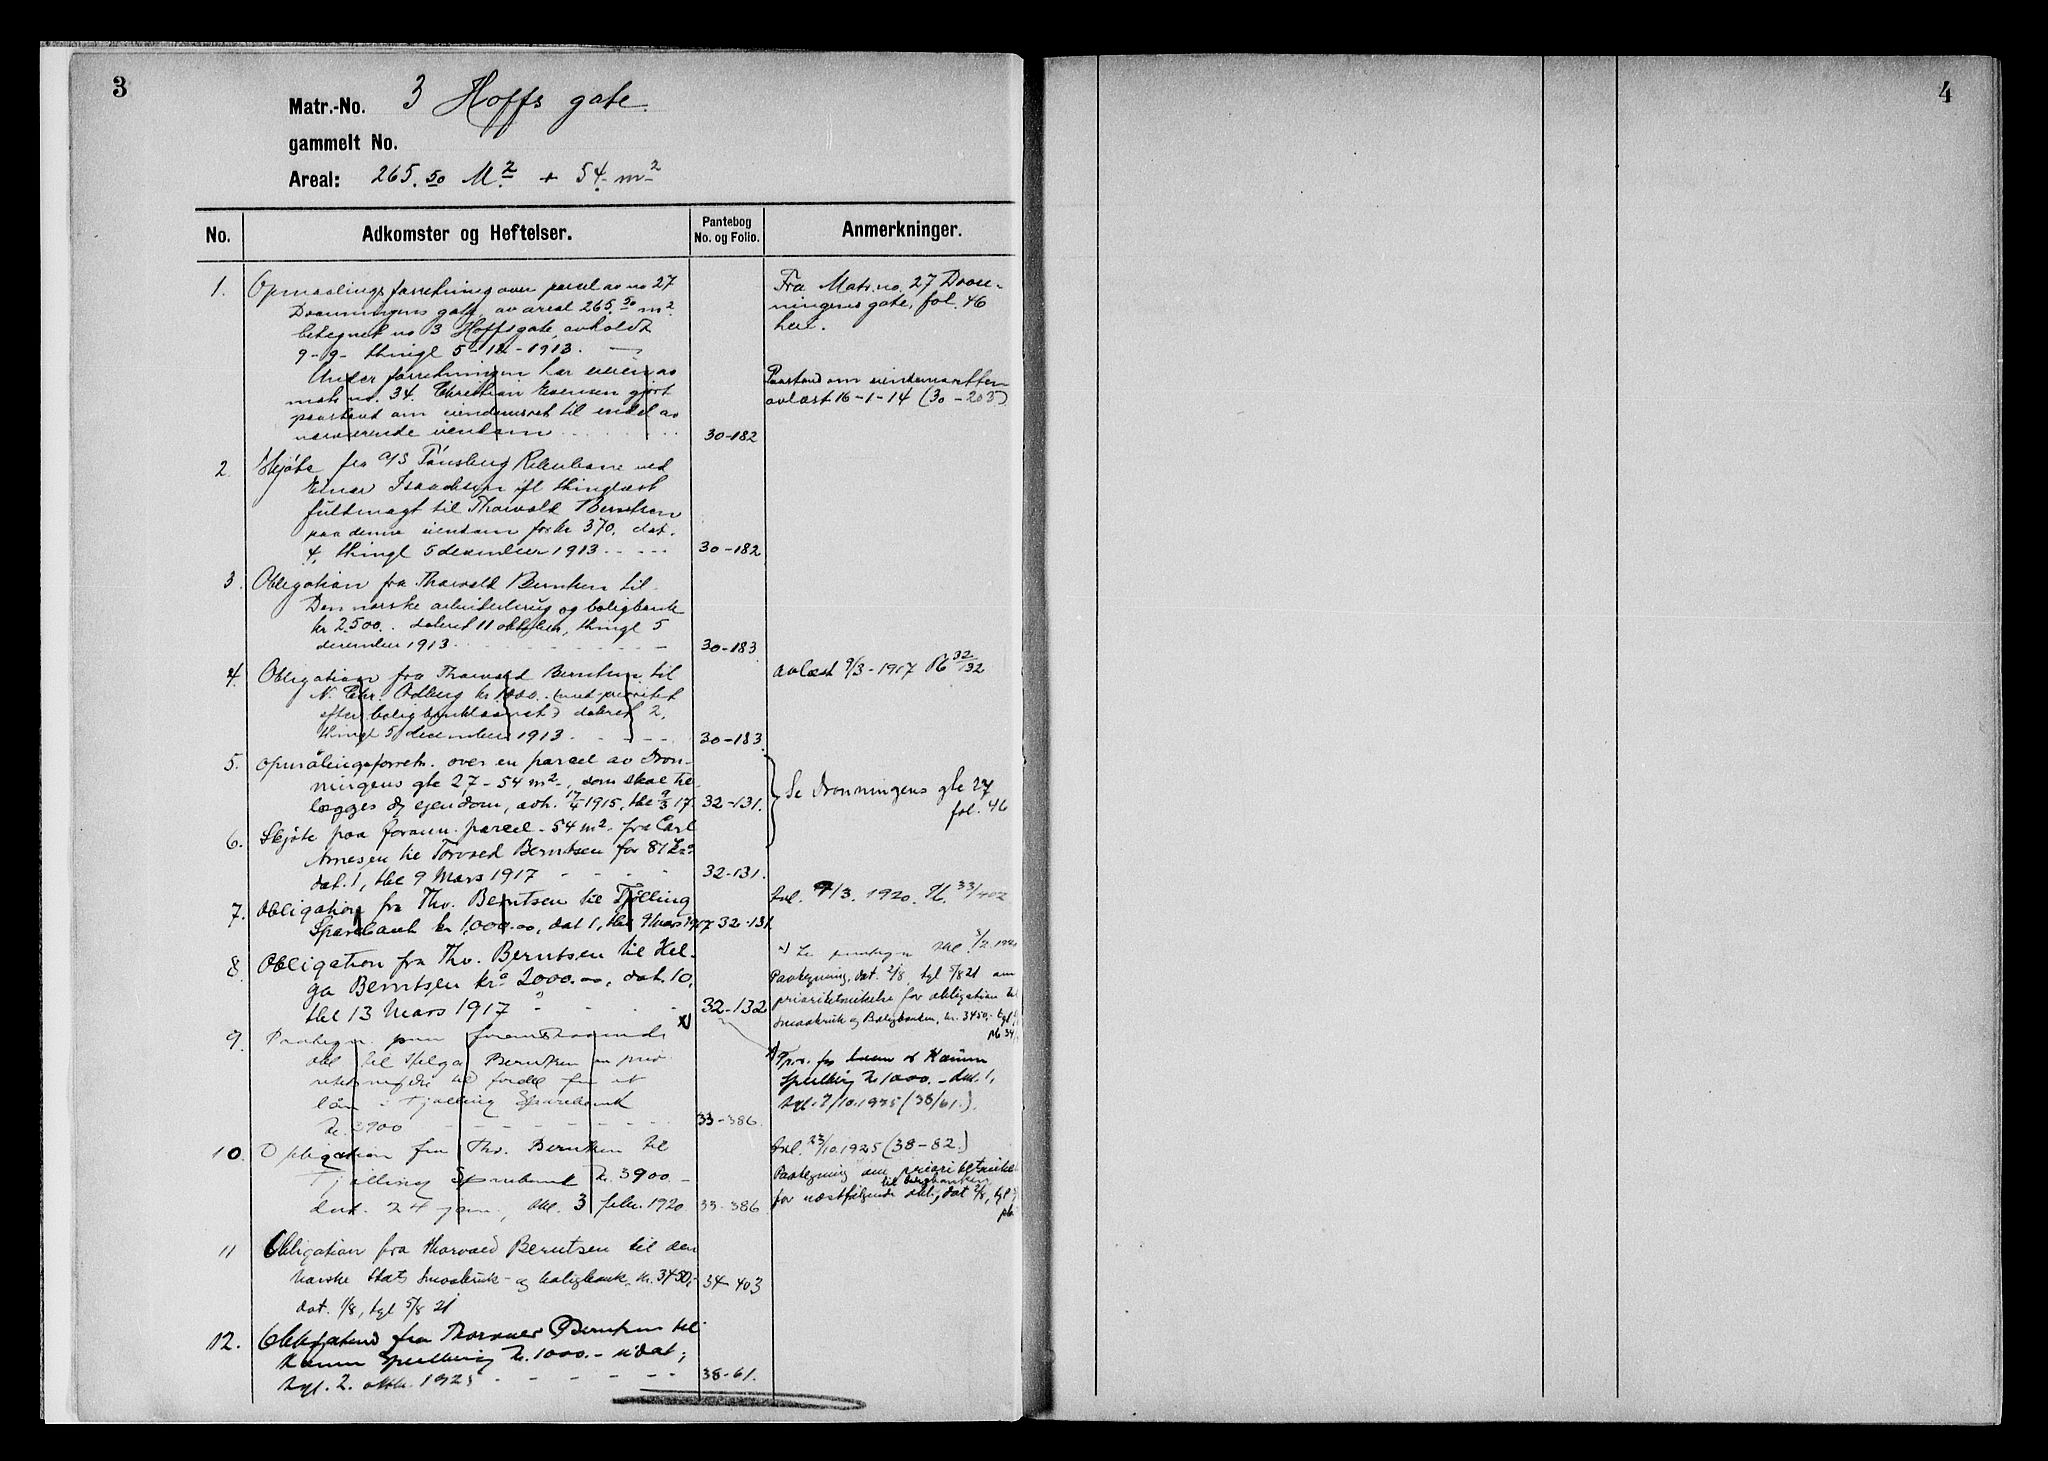 3
Matr.-No. 3 Hoffs gate.
gammelt No.
Areal: 265.50 M2 + 54 m2
No.
Adkomster og Heftelser.
Pantebog
No. og Folio.
Anmerkninger.
1. Opmaalingsforretning over parcel av no 27
Dronningens gate, av areal 265.50 m2
betegnet no 3 Hoffsgate, avholdt
9-9- thingl 5-12-1913.
Under forretningen har eieren av
matr no. 34. Christian Evensen gjort
paastand om eiendomsret til endel av
nærværende eiendom 30-182
Fra Matr. no. 27 Dron-
ningens gate, fol. 46
her.
Paastand om eiendomsretten
avlæst 16-1-14 (30-203)
2. Skjøte fra A/S Tønsberg Reberbane ved
Einar Isaachsen ifl thinglæst
fuldmagt til Thorvald Berntsen
paa denne eiendom for kr 370. dat.
4, thingl 5 december 1913 30-182
3. Obligation fra Thorvald Berntsen til
Den norske arbeiderbrug og boligbank
kr 2500. dateret 11 oktober, thingl 5
december 1913 30-183
4. Obligation fra Thorvald Berntsen til
N. Chr. Odberg kr 1000. (med prioritet
efter boligbanklaanet) dateret 2,
thingl 5 december 1913. 30-183.
avlæst 9/3-1917 Pb 32/132
5. Opmålingsforretn. over en parcel av Dron-
ningens gte 27 - 54 m2, som skal til-
lægges dg ejendom, avh. 17/4 1915, tbl 9/3 17. 32-131.
6. Skjøte paa forann. parcel - 54 m2. fra Carl
Arnesen til Torvald Berntsen for 81 kr
dat. 1, tbl 9 Mars 1917 32-131.
Se Dronningens gte 27
fol. 46
7. Obligation fra Thv. Berntsen til Tjølling
Sparebank kr 1,000.00, dat 1, tbl 9 Mars 1917 32-131
Avl. 9/3. 1920. Pb. 33/402
8 Obligation fra Thv. Berntsen til Hel-
ga Berntsen kr 2000.00, dat. 10,
tbl 13 Mars 1917 32-132
Paategning, dat. 2/8, tgl 5/8 21 om
prioritetsvikelse for obligation til
Smaabruk og Boligbanken, kr. 3450,- tgl
pb 34/
9. Paategn. paa foranstaaende x)
obl til Helga Berntsen om prio
til fordel for et
lån i Tjølling Sparebank
kr. 3900 33-386.
Spilling kr 1000.- dat. 1,
tgl. 2/10.1925 (38/61.).
10. Obligation fra Thv. Berntsen til
Tjølling Sparebank kr. 3900 -
dat. 24 jan., tbl. 3 febr. 1920 33-386
Avl. 23/10.1925 (38-82.)
Paategning om prioritetsvikelse
til boligbanken
for næstfølgende obl, dat 2/8, tgl
pb.
11 Obligation fra Thorvald Berntsen til den
Norske Stats Smaabruk- og boligbank, kr. 3450,- 34-403
dat. 1/8, tgl 5/8 21
12. Obligation fra Thorvald Berntsen til
Spilling kr. 1000.- udat;
tgl. 2. oktbr. 1925 38-61.
4